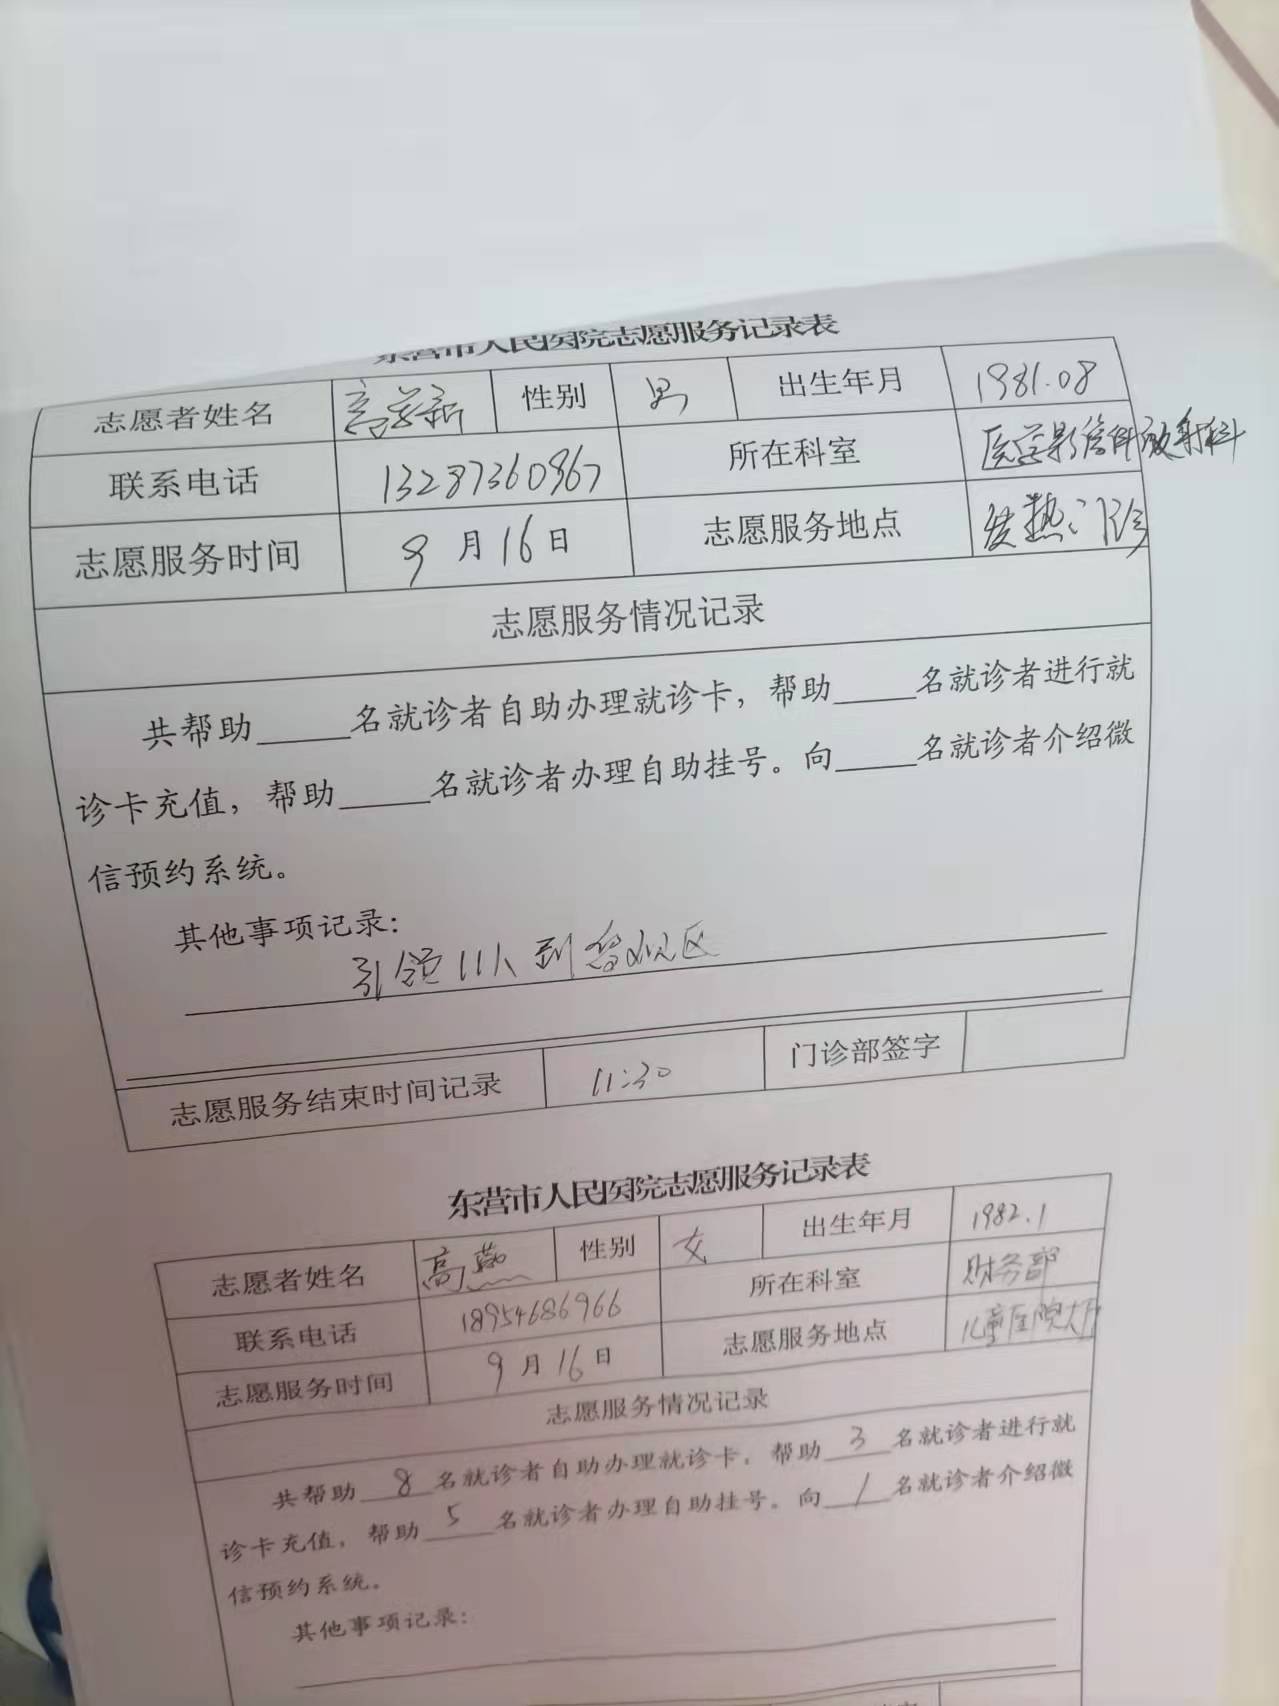 东营市人民医院志愿服务记录表
志愿者姓名 高学新 性别 男 出生年月 1981.08
联系电话 13287360967 所在科室 医学影像科放射科
志愿服务时间 9月16日 志愿服务地点 发热门诊
志愿服务情况记录
共帮助_____名就诊者自助办理就诊卡，帮助_____名就诊者进行就
诊卡充值，帮助_____名就诊者办理自助挂号。向_____名就诊者介绍微
信预约系统。
其他事项记录：
引领11人到留观区
志愿服务结束时间记录 11:30 门诊部签字
东营市人民医院志愿服务记录表
志愿者姓名 高燕 性别 女 出生年月 1982.1
联系电话 18954686966 所在科室 财务部
志愿服务时间 9月16日 志愿服务地点 儿童医院大厅
志愿服务情况记录
共帮助 8 名就诊者自助办理就诊卡，帮助 3 名就诊者进行就
诊卡充值，帮助 5 名就诊者办理自助挂号。向 1 名就诊者介绍微
信预约系统。
其他事项记录：